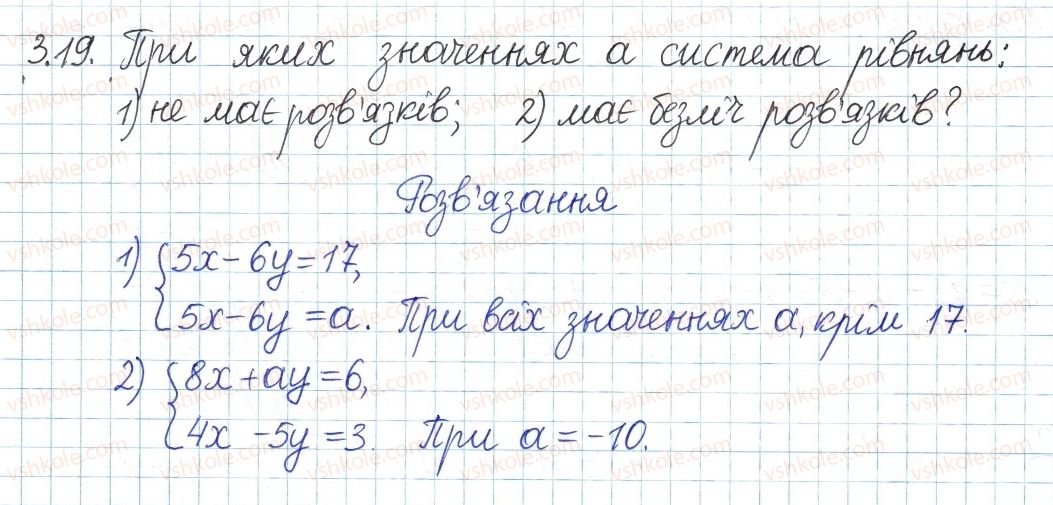 3.19. При яких значеннях а система рівнянь:
1) не має розв'язків; 2) має безліч розв'язків?
Розв'язання
1) { 5x - 6y = 17,
5x - 6y = a. При всіх значеннях а, крім 17.
2) { 8x + ay = 6,
4x - 5y = 3. При a = -10.